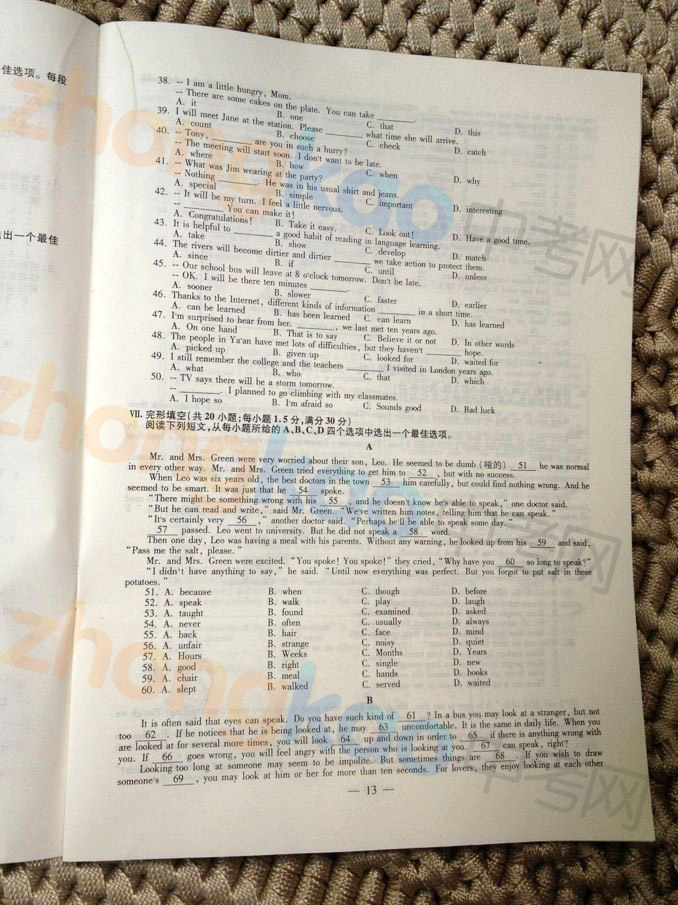 佳选项。每段
出一个最佳
38. -- I am a little hungry, Mom.
-- There are some cakes on the plate. You can take ______.
A. it B. one C. that D. this
39. I will meet Jane at the station. Please ______ what time she will arrive.
A. count B. choose C. check D. catch
40. -- Tony, ______ are you in such a hurry?
-- The meeting will start soon. I don't want to be late.
A. where B. how C. when D. why
41. -- What was Jim wearing at the party?
-- Nothing ______. He was in his usual shirt and jeans.
A. special B. simple C. important D. interesting
42. -- It will be my turn. I feel a little nervous.
-- ______ You can make it!
A. Congratulations! B. Take it easy. C. Look out! D. Have a good time.
43. It is helpful to ______ a good habit of reading in language learning.
A. take B. show C. develop D. match
44. The rivers will become dirtier and dirtier ______ we take action to protect them.
A. since B. if C. until D. unless
45. -- Our school bus will leave at 8 o'clock tomorrow. Don't be late.
-- OK. I will be there ten minutes ______.
A. sooner B. slower C. faster D. earlier
46. Thanks to the Internet, different kinds of information ______ in a short time.
A. can be learned B. has been learned C. can learn D. has learned
47. I'm surprised to hear from her. ______, we last met ten years ago.
A. On one hand B. That is to say C. Believe it or not D. In other words
48. The people in Ya'an have met lots of difficulties, but they haven't ______ hope.
A. picked up B. given up C. looked for D. waited for
49. I still remember the college and the teachers ______ I visited in London years ago.
A. what B. who C. that D. which
50. -- TV says there will be a storm tomorrow.
-- ______. I planned to go climbing with my classmates.
A. I hope so B. I'm afraid so C. Sounds good D. Bad luck
Ⅶ. 完形填空(共20小题;每小题1.5分,满分30分)
阅读下列短文,从每小题所给的A、B、C、D四个选项中选出一个最佳选项。
A
Mr. and Mrs. Green were very worried about their son, Leo. He seemed to be dumb (哑的) 51 he was normal
in every other way. Mr. and Mrs. Green tried everything to get him to 52 , but with no success.
When Leo was six years old, the best doctors in the town 53 him carefully, but could find nothing wrong. And he
seemed to be smart. It was just that he 54 spoke.
"There might be something wrong with his 55 , and he doesn't know he's able to speak," one doctor said.
"But he can read and write," said Mr. Green. "We've written him notes, telling him that he can speak."
"It's certainly very 56 ," another doctor said. "Perhaps he'll be able to speak some day."
57 passed. Leo went to university. But he did not speak a 58 word.
Then one day, Leo was having a meal with his parents. Without any warning, he looked up from his 59 and said,
"Pass me the salt, please."
Mr. and Mrs. Green were excited. "You spoke! You spoke!" they cried, "Why have you 60 so long to speak?"
"I didn't have anything to say," he said. "Until now everything was perfect. But you forgot to put salt in these
potatoes."
51. A. because B. when C. though D. before
52. A. speak B. walk C. play D. laugh
53. A. taught B. found C. examined D. asked
54. A. never B. often C. usually D. always
55. A. back B. hair C. face D. mind
56. A. unfair B. strange C. noisy D. quiet
57. A. Hours B. Weeks C. Months D. Years
58. A. good B. right C. single D. new
59. A. chair B. meal C. hands D. books
60. A. slept B. walked C. served D. waited
B
It is often said that eyes can speak. Do you have such kind of 61 ? In a bus you may look at a stranger, but not
too 62 . If he notices that he is being looked at, he may 63 uncomfortable. It is the same in daily life. When you
are looked at for several more times, you will look 64 up and down in order to 65 if there is anything wrong with
you. If 66 goes wrong, you will feel angry with the person who is looking at you. 67 can speak, right?
Looking too long at someone may seem to be impolite. But sometimes things are 68 . If you wish to draw
someone's 69 , you may look at him or her for more than ten seconds. For lovers, they enjoy looking at each other
— 13 —
zhongkao
中考网
zhongkao
中考网
zhongkao
中考网